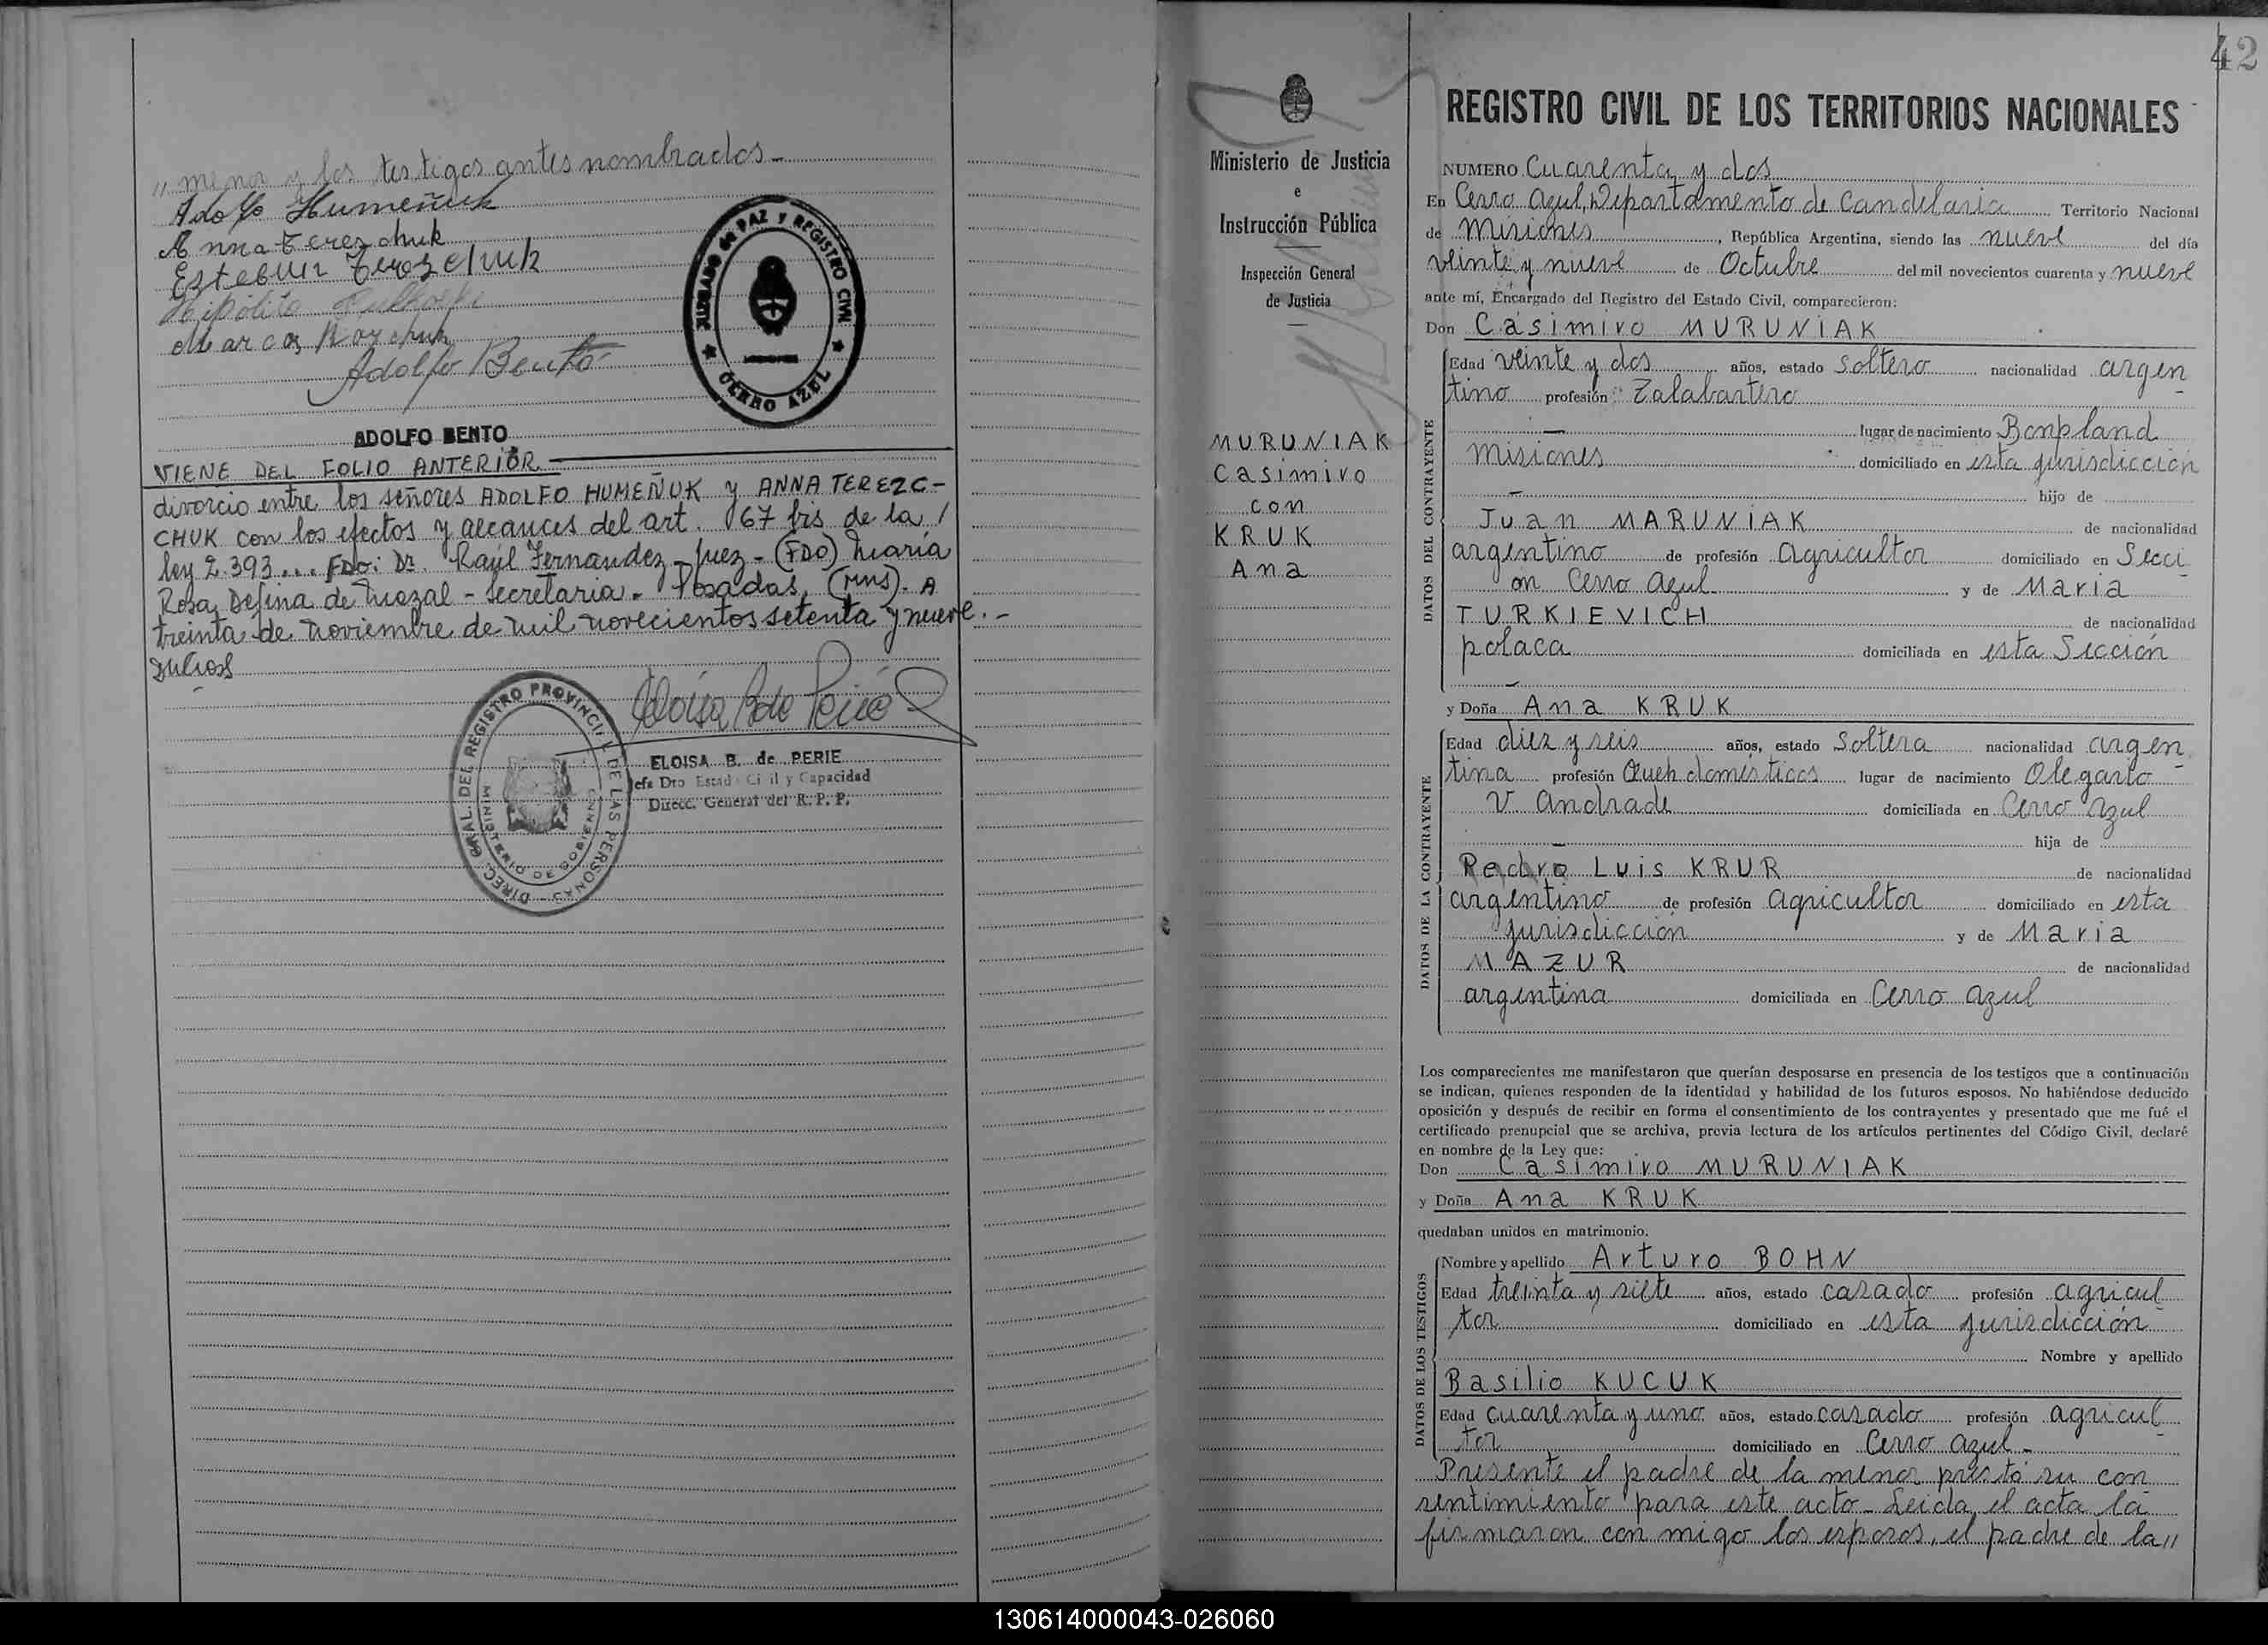 " menor y los testigos antes nombrados.-
Adolfo Humeñuk
Anna Terezchuk
Esteban Terezchuk
Hipólito
Marcos
Adolfo Bento
JUZGADO de PAZ Y REGISTRO CIVIL
CERRO AZUL
ADOLFO BENTO
VIENE DEL FOLIO ANTERIOR
divorcio entre los señores ADOLFO HUMEÑUK y ANNA TEREZC-
CHUK con los efectos y alcances del art. 67 bis de la /
ley 2.393... FDO: Dr. Raúl Fernandez - Juez - (FDO) María
Rosa Defina de - Secretaria - Posadas, (Mns). A
treinta de noviembre de mil novecientos setenta y nueve.-
ELOISA B. de PERIE
Jefa Dto Estado Civil y Capacidad
Direcc. General del R. P. P.
DIREC. GRAL. DEL REGISTRO PROVINCIAL DE LAS PERSONAS
MINISTERIO DE GOBIERNO
42
Ministerio de Justicia
e
Instrucción Pública
Inspección General
de Justicia
MURUNIAK
Casimiro
con
KRUK
Ana
REGISTRO CIVIL DE LOS TERRITORIOS NACIONALES
NUMERO Cuarenta y dos
En Cerro Azul, Departamento de Candelaria Territorio Nacional
de Misiones, República Argentina, siendo las nueve del día
veinte y nueve de Octubre del mil novecientos cuarenta y nueve
ante mí, Encargado del Registro del Estado Civil, comparecieron:
Don Casimiro MURUNIAK
DATOS DEL CONTRAYENTE
Edad veinte y dos años, estado soltero nacionalidad argen
tino profesión Talabartero
lugar de nacimiento Bonpland
Misiones domiciliado en esta jurisdicción
hijo de
Juan MARUNIAK de nacionalidad
argentino de profesión agricultor domiciliado en Secci
ón Cerro Azul y de Maria
TURKIEVICH de nacionalidad
polaca domiciliada en esta Sección
y Doña Ana KRUK
DATOS DE LA CONTRAYENTE
Edad diez y seis años, estado soltera nacionalidad argen
tina profesión Queh. domésticos lugar de nacimiento Olegario
V. Andrade domiciliada en Cerro Azul
hija de
Pedro Luis KRUR de nacionalidad
argentino de profesión agricultor domiciliado en esta
jurisdicción y de Maria
MAZUR de nacionalidad
argentina domiciliada en Cerro Azul
Los comparecientes me manifestaron que querían desposarse en presencia de los testigos que a continuación
se indican, quienes responden de la identidad y habilidad de los futuros esposos. No habiéndose deducido
oposición y después de recibir en forma el consentimiento de los contrayentes y presentado que me fué el
certificado prenupcial que se archiva, previa lectura de los artículos pertinentes del Código Civil, declaré
en nombre de la Ley que:
Don Casimiro MURUNIAK
y Doña Ana KRUK
quedaban unidos en matrimonio.
DATOS DE LOS TESTIGOS
Nombre y apellido Arturo BOHN
Edad treinta y siete años, estado casado profesión agricul
tor domiciliado en esta jurisdicción
Nombre y apellido
Basilio KUCUK
Edad cuarenta y uno años, estado casado profesión agricul
tor domiciliado en Cerro Azul -
Presente el padre de la menor prestó su con
sentimiento para este acto - Leida el acta la
firmaron con migo los esposos, el padre de la "
130614000043-026060